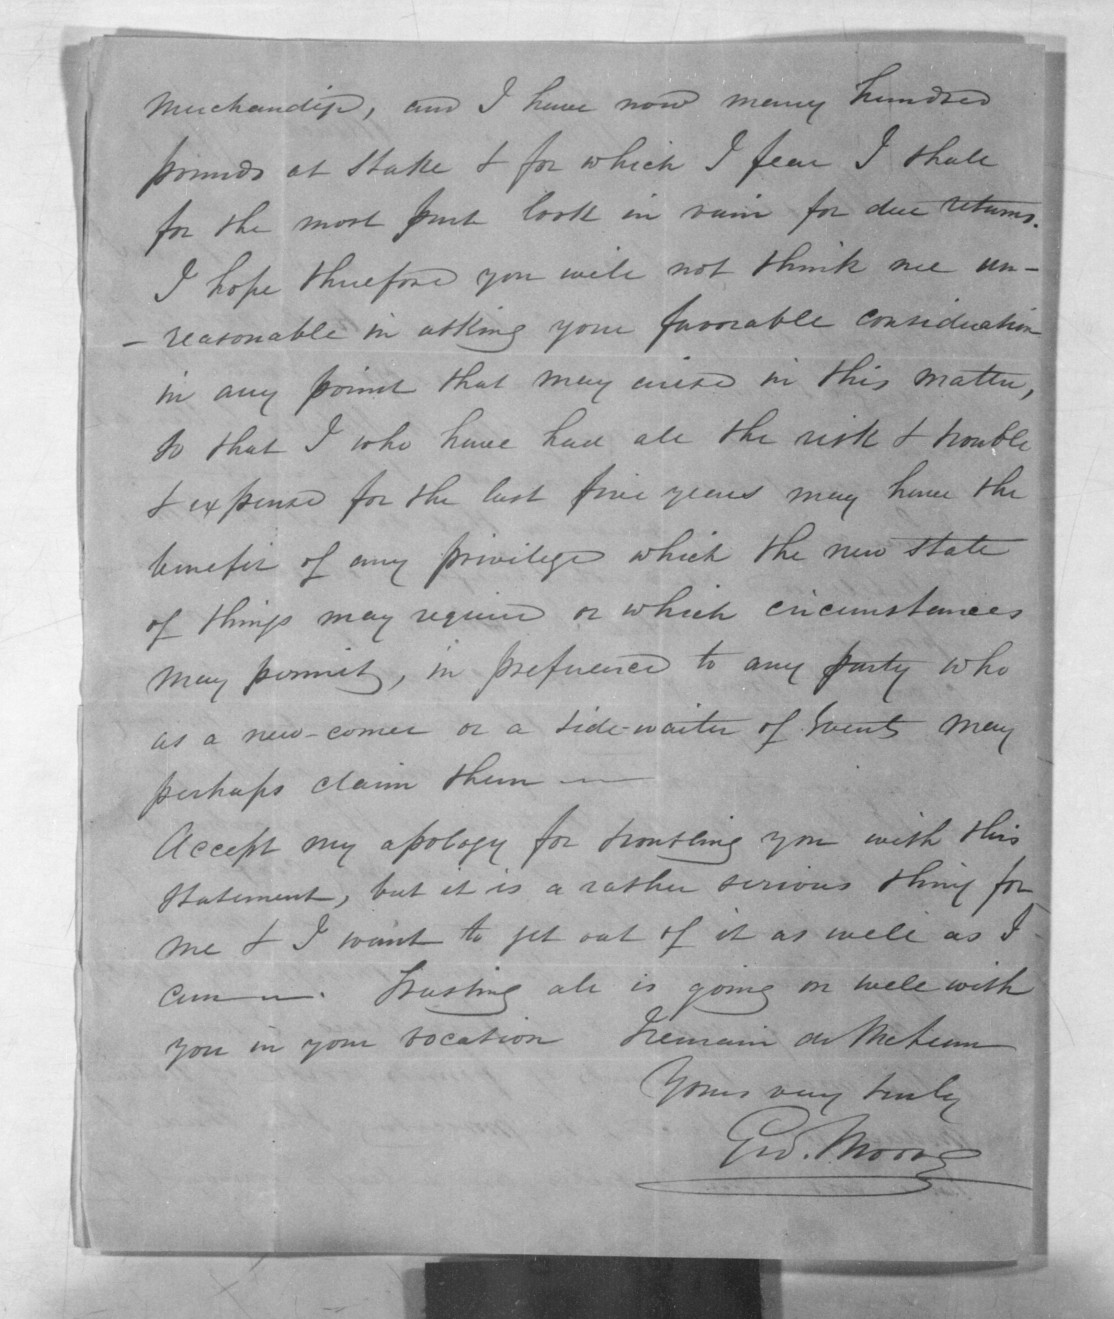 Merchandise, and I have now many hundred
pounds at stake & for which I fear I shall
for the most part look in vain for due returns.
I hope therefore you will not think me un-
- reasonable in asking your favorable consideration
in any point that may arise in this matter,
so that I who have had all the risk & trouble
& expense for the last five years may have the
benefit of any privilege which the new state
of things may require or which circumstances
may permit, in preference to any party who
as a new-comer or a side-waiter of Events may
perhaps claim them —
Accept my apology for troubling you with this
statement, but it is a rather serious thing for
me & I want to get out of it as well as I
can —. Trusting all is going on well with
you in your vocation I remain dr McLean
Yours very truly
Geo. Moore